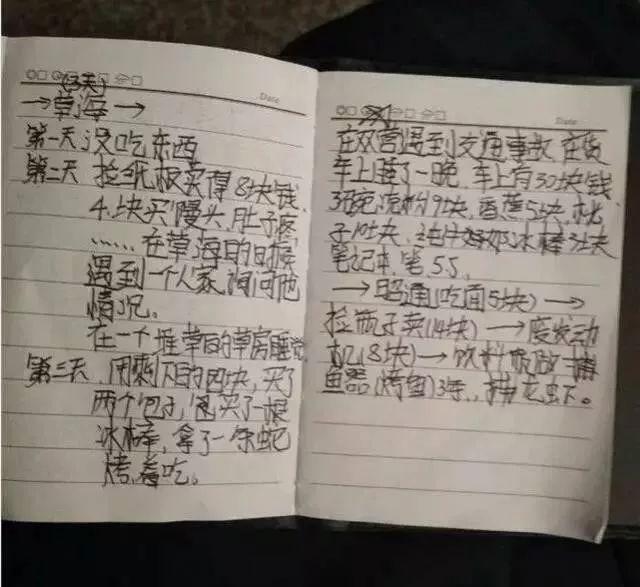 (3天)
→草海→
第一天 没吃东西
第二天 捡纸板卖得8块钱,
4块买馒头,肚子疼
……在草海的
遇到一个人家,询问他
情况。
在一个堆草的草房睡觉
第三天,用剩下的四块,买了
两个包子,买了一根
冰棒,拿了一条蛇
烤着吃。
Date
在双营遇到交通事故,在货
车上睡了一晚,车上有30块钱,
3碗泡粉9块,香蕉5块,桃
子10块,纯牛奶冰棒3块
笔记本,笔,5.5,
→昭通(吃面5块)→
捡瓶子卖(14块)→废发动
机(8块)→饮料瓶做捕
鱼器(烤鱼)3条,捕龙虾。
Date